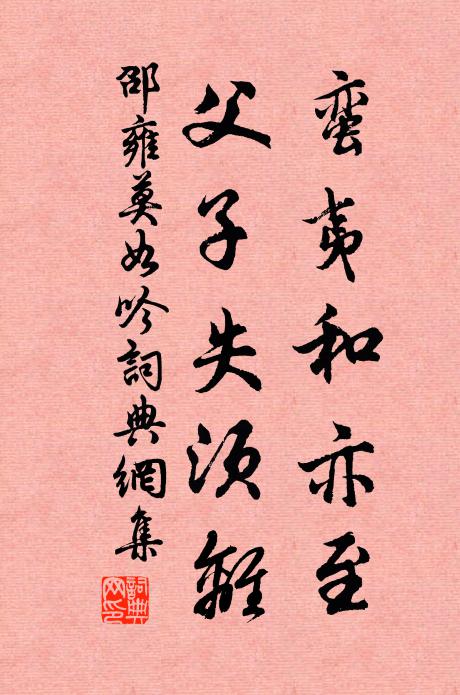 蛮夷和亦至
父子失须離
邵雍莫如吟詞典網集
詞典网印